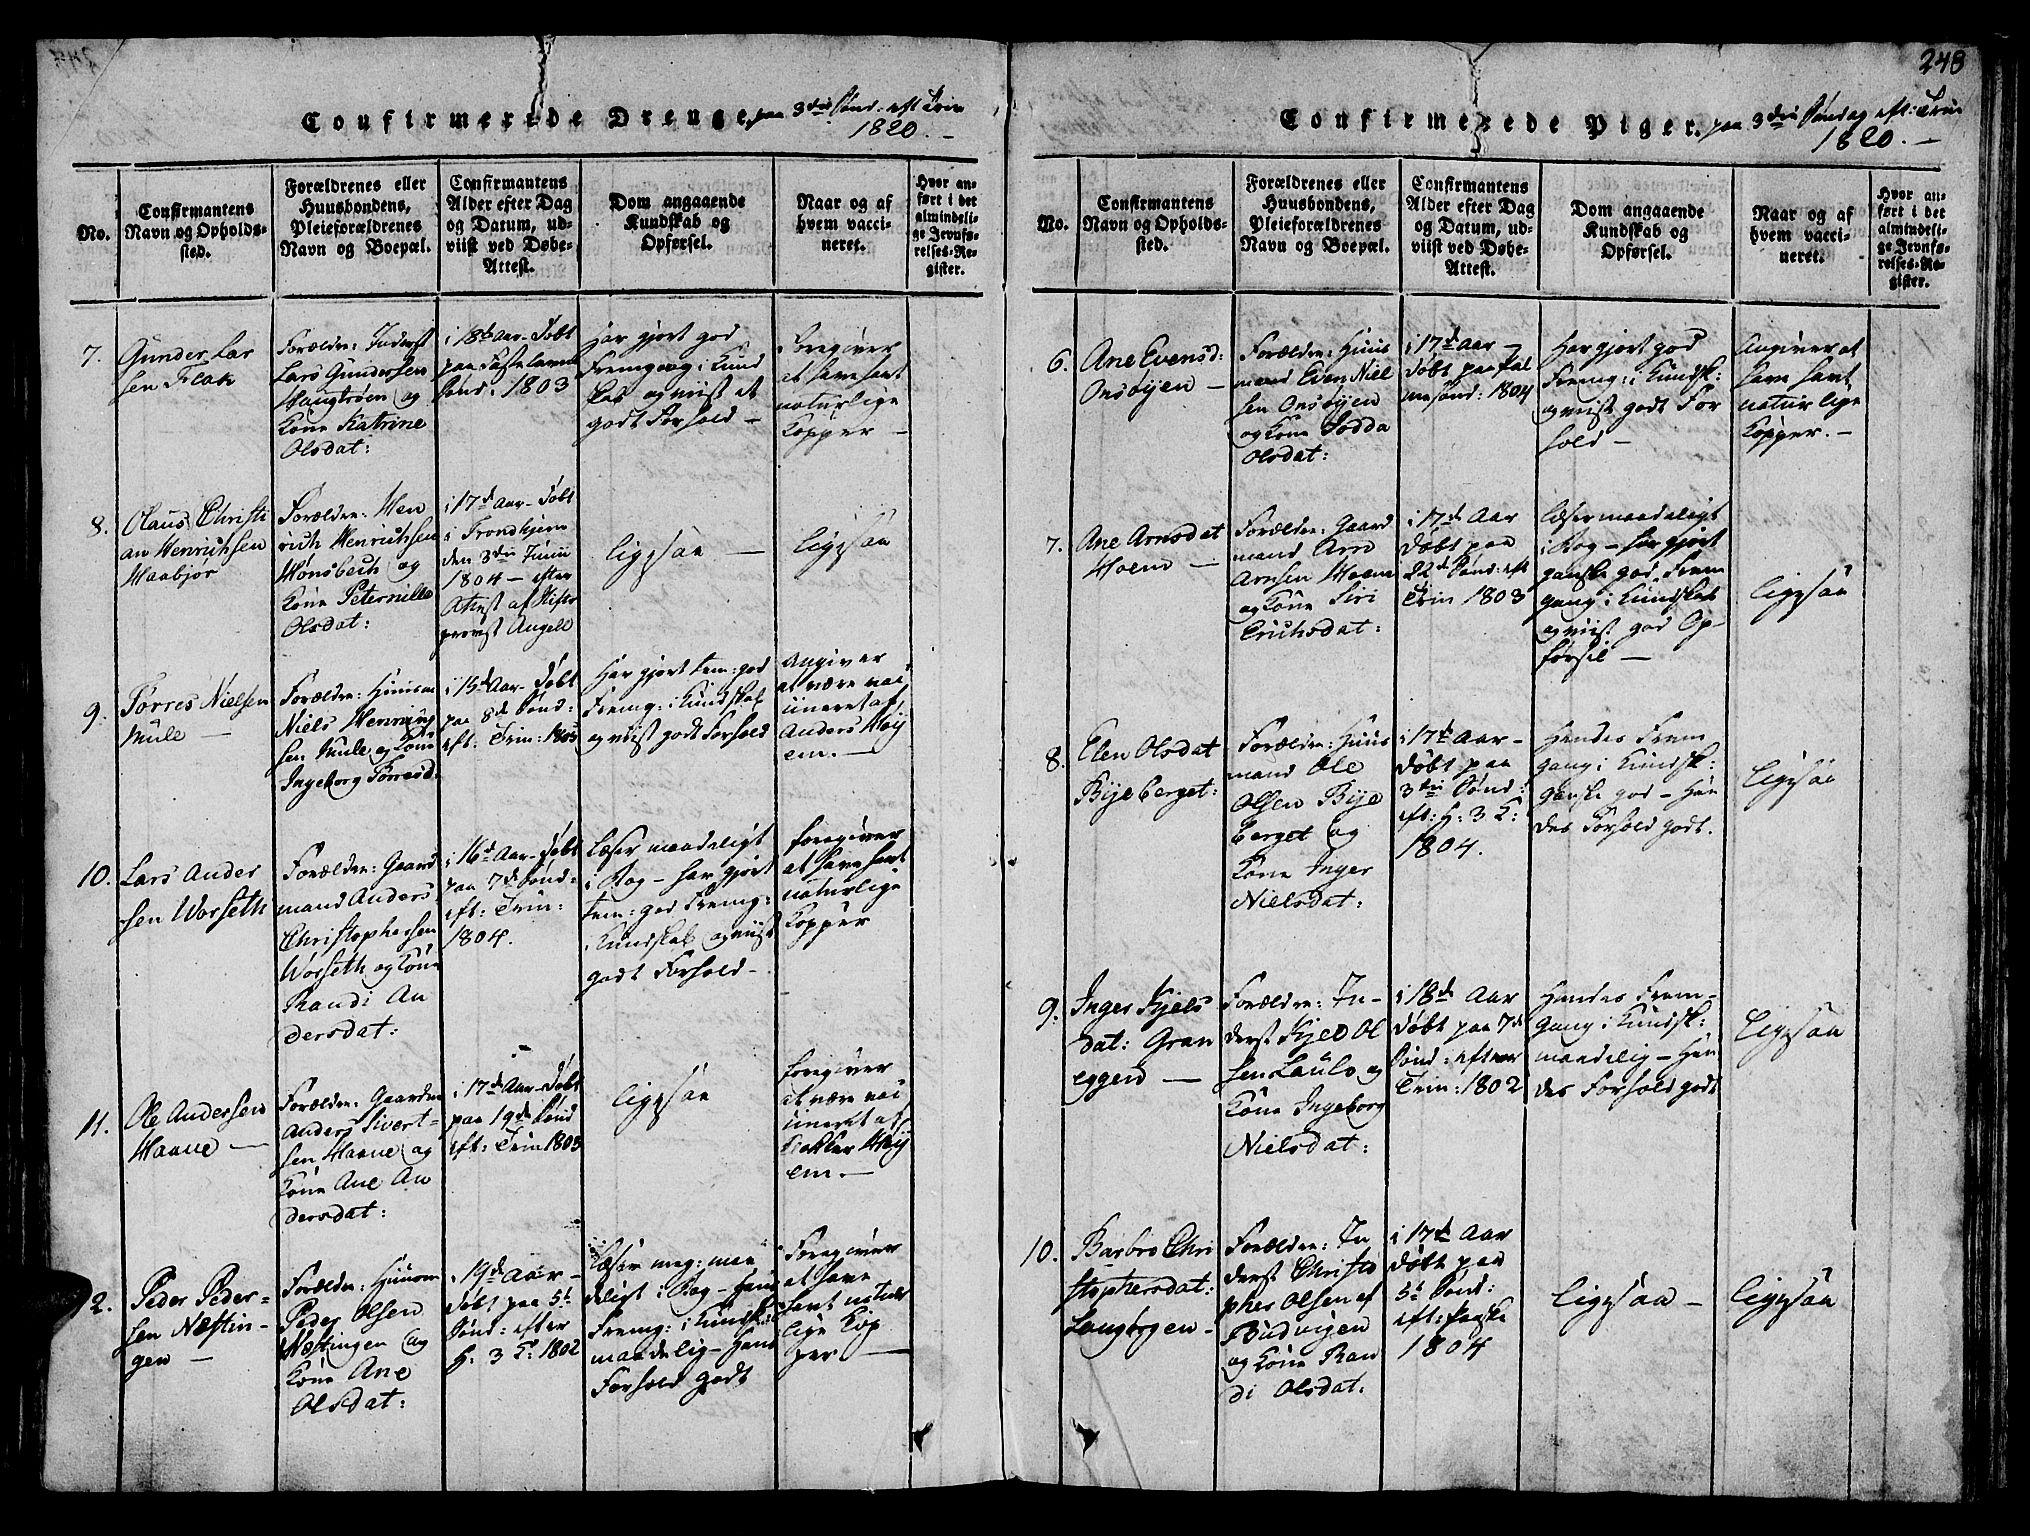 248
Confirmerede Drenge, paa 3die Sønd: eft Trin
1820. —
No.
Confirmantens
Navn og Opholds-
sted.
Forældrenes eller
Huusbondens,
Pleieforældrenes
Navn og Boepæl.
Confirmantens
Alder efter Dag
og Datum, ud-
viist ved Døbe-
Attest.
Dom angaaende
Kundskab og
Opførsel.
Naar og af
hvem vacci-
neret.
Hvor an-
ført i det
almindeli-
ge Jevnfø-
relses-Re-
gister.
7.
Gunder Lar
sen Flak
Forældre: Inderst
Lars Gundersen
Haugtrøen og
Kone Katrine
Olsdat:
i 18d Aar - Døbt
paa Fastelavns
Sønd: 1803
Har gjort god
Fremgang i Kund
skab og viist et
godt Forhold —
Foregiver
at have havt
naturlige
Kopper —
8.
Olaus Christi
an Henrichsen
Haabjør
Forældre: Hen
rich Henrichsen
Hønsbech og
Kone Peternille
Olsdat:
i 17d Aar - Døbt
i Trondhjem
den 3die Junii
1804 - efter
Attest af Stifts
provst Angell
ligesaa —
ligesaa
9.
Torres Nielsen
Mule —
Forældre: Huusm
Niels Henning
sen Mule og Kone
Ingeborg Torresd:
i 15d Aar - Døbt
paa 8d Sønd:
eft: Trin: 1805
Har gjort tem: god
Fremg: i Kundskab
og viist godt Forhold
Angiver
at være vac
cineret af
Anders Høy
em. —
10.
Lars Ander
sen Worseth
Forældre: Gaard
mand Anders
Christophersen
Worseth og Kone
Randi An
dersdat:
i 16d Aar - Døbt
paa 7d Sønd:
eft: Trin:
1804.
Læser maadeligt
i Bog - har gjort
tem: god Fremg:
i Kundskab og viist
godt Forhold -
Foregiver
at have havt
naturlige
Kopper
11.
Ole Andersen
Haave —
Forældre: Gaardm
Anders Sivert-
sen Haave og
Kone Ane An
dersdat:
i 17d Aar - Døbt
paa 19d Sønd
eft: Trin 1803
ligesaa
Foregiver
at være vac
cineret af
Klokker Høy
em. —
2.
Peder Peder-
sen Næstin-
gen —
Forældre: Huusm
Peder Olsen
Næstingen og
Kone Ane
Olsdat:
i 19d Aar -
Døbt paa 5t
Sønd: efter
H: 3 K: 1802
Læser meg: maa
deligt i Bog - Hans
Fremg: i Kundskab
maadelig - Hans
Forhold godt
Foregiver
at have
havt natur
lige Kop
per —
Confirmerede Piger. paa 3die Søndag eft: Trin
1820. —
No.
Confirmantens
Navn og Opholds-
sted.
Forældrenes eller
Huusbondens,
Pleieforældrenes
Navn og Boepæl.
Confirmantens
Alder efter Dag
og Datum, ud-
viist ved Døbe-
Attest.
Dom angaaende
Kundskab og
Opførsel.
Naar og af
hvem vacci-
neret.
Hvor an-
ført i det
almindeli-
ge Jevnfø-
relses-Re-
gister.
6.
Ane Evensd:
Onsøyen —
Forældre: Huus
mand Even Niel
sen Onsøyen
og Kone Dodda
Olsdat:
i 17d Aar -
Døbt paa Pal
mesønd: 1804
Har gjort god
Fremg: i Kundsk:
og viist godt For
hold —
Angiver at
have havt
naturlige
Kopper. —
7.
Ane Arnsdat
Hoem —
Forældre: Gaard
mand Arn
Arnsen Hoem
og Kone Siri
Erichsdat:
i 17d Aar
Døbt paa
22d Sønd: eft
Trin 1803
Læser maadeligt
i Bog - har gjort
ganske god Frem
gang i Kundskab
og viist god Op-
førsel —
ligesaa
8.
Elen Olsdat
Bijeberget:
Forældre: Huus
mand Ole
Olsen Bije
berget og
Kone Inger
Nielsdat:
i 17d Aar -
Døbt paa
3die Sønd:
eft: H: 3 K:
1804.
Hendes Frem
gang i Kundsk:
ganske god - Hen
des Forhold godt.
ligesaa
9.
Inger Kjels
dat: Gran
eggen —
Forældre: In-
derst Kjeld Ol
sen Laulo og
Kone Ingeborg
Nielsdat:
i 18d Aar
Døbt paa 7d
Sønd: efter
Trin: 1802
Hendes Frem-
gang i Kundsk:
maadelig - Hen
des Forhold godt
ligesaa
10.
Barbro Chri
stophersdat:
Langørgen -
Forældre: In
derst Christo
pher Olsen af
Budvigen
og Kone Ran
di Olsdat.
i 17d Aar
Døbt paa
5t Sønd:
eft: Paaske
1804
ligesaa —
ligesaa